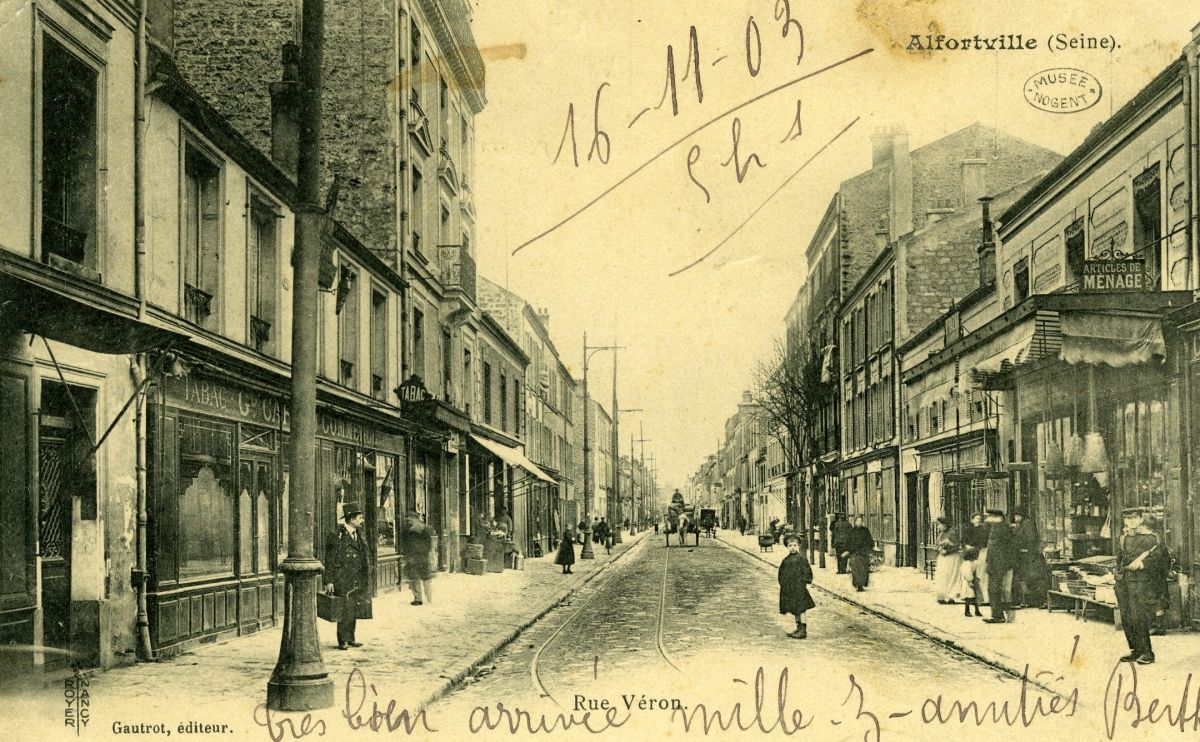 Alfortville (Seine).
MUSÉE
NOGENT
16-11-03
5h s
ARTICLES DE
MÉNAGE
TABAC
TABAC Gd CAFÉ
Rue Véron.
ROYER
NANCY
Gautrot, éditeur.
très bien arrivée mille amitiés